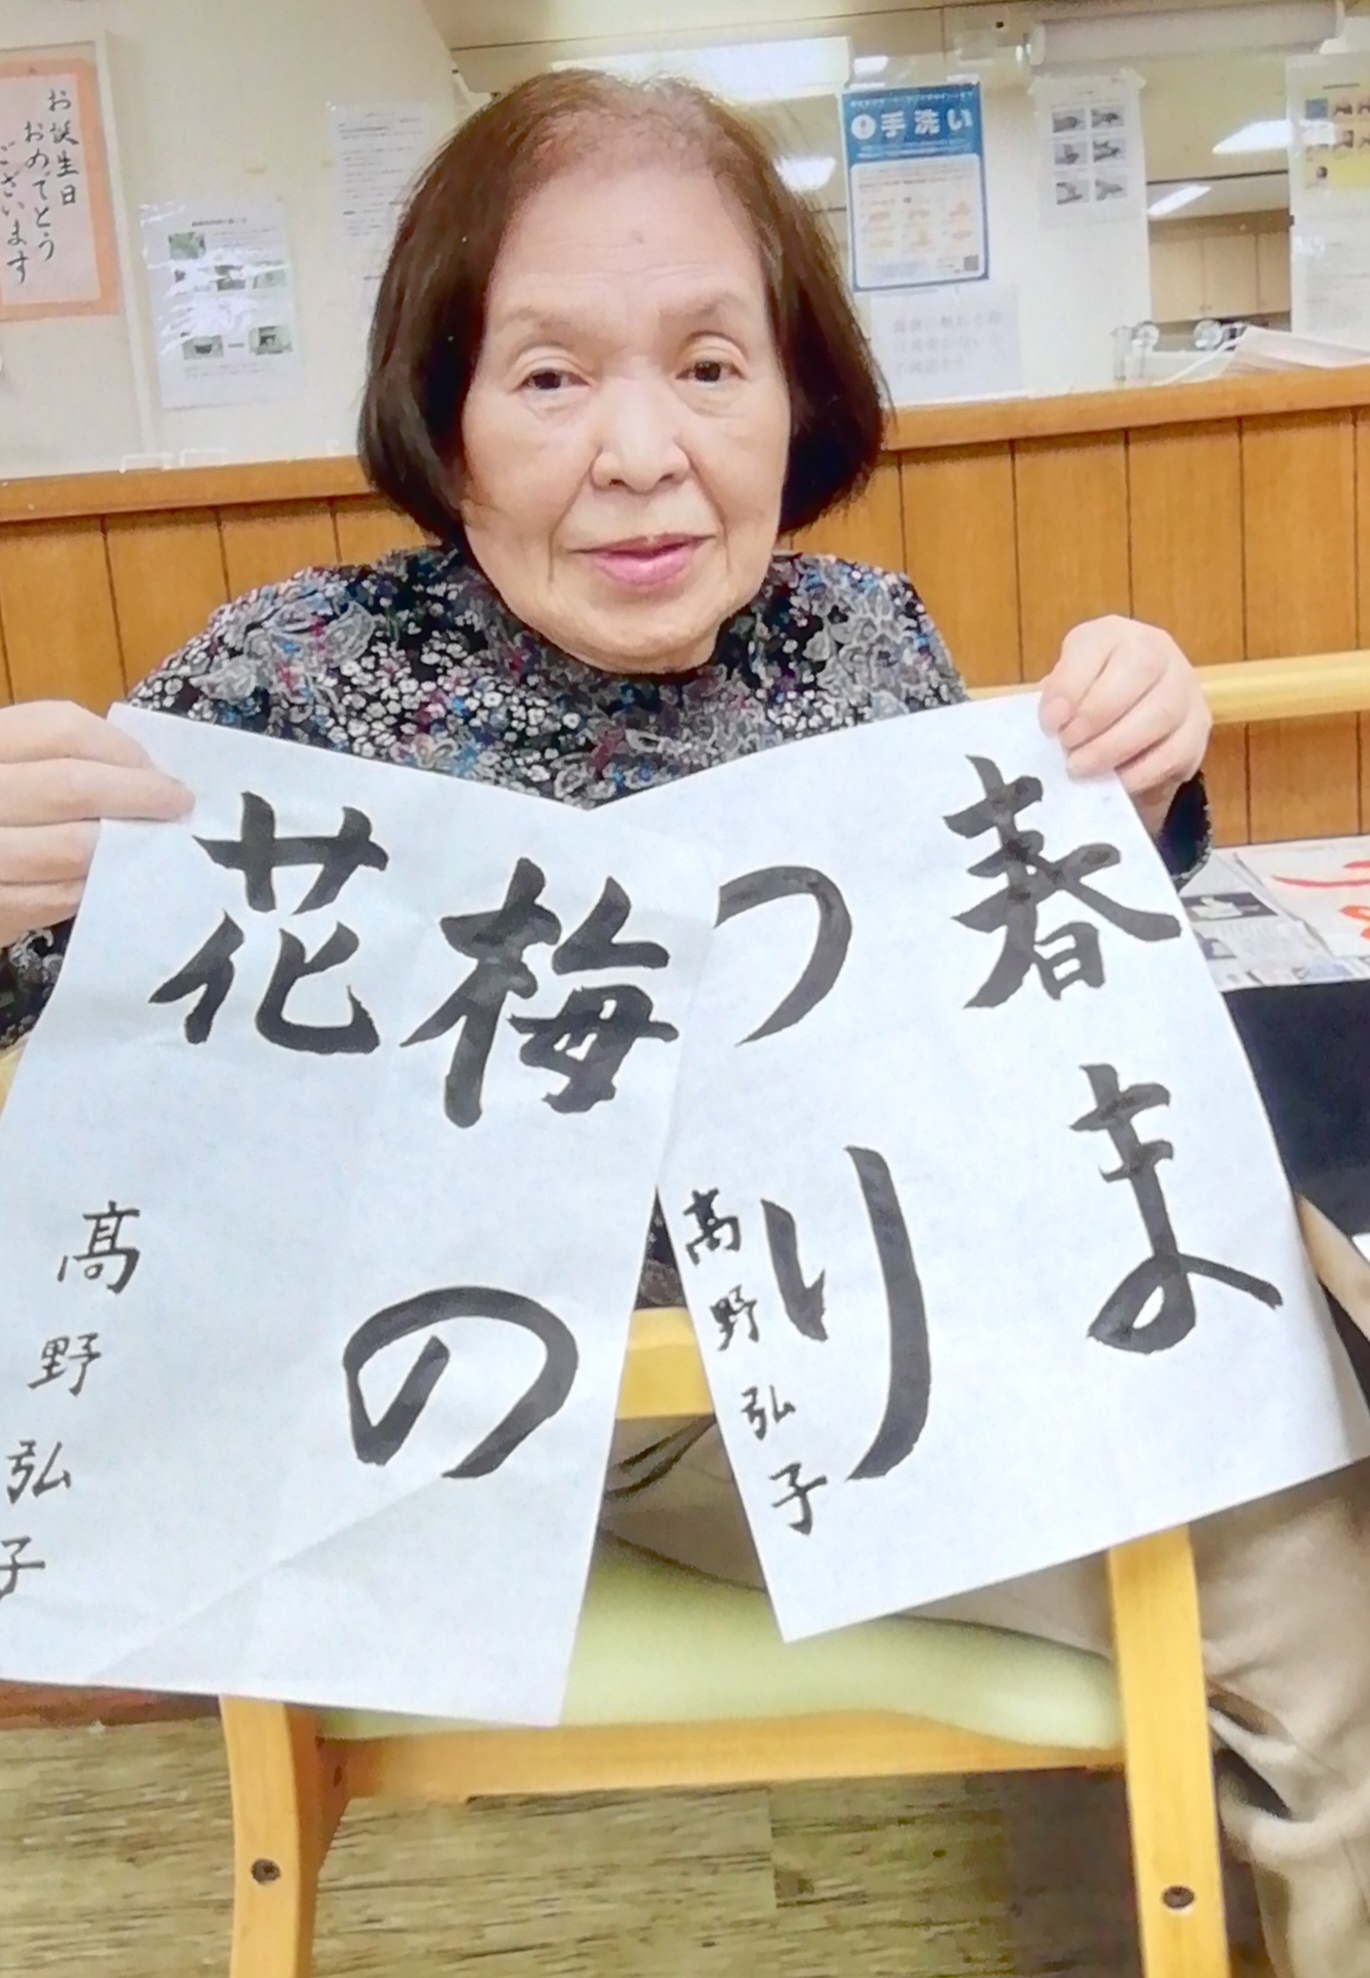 お誕生日
おめでとう
ございます
手洗い
春ま
つり
髙野弘子
梅の
花
髙野弘子